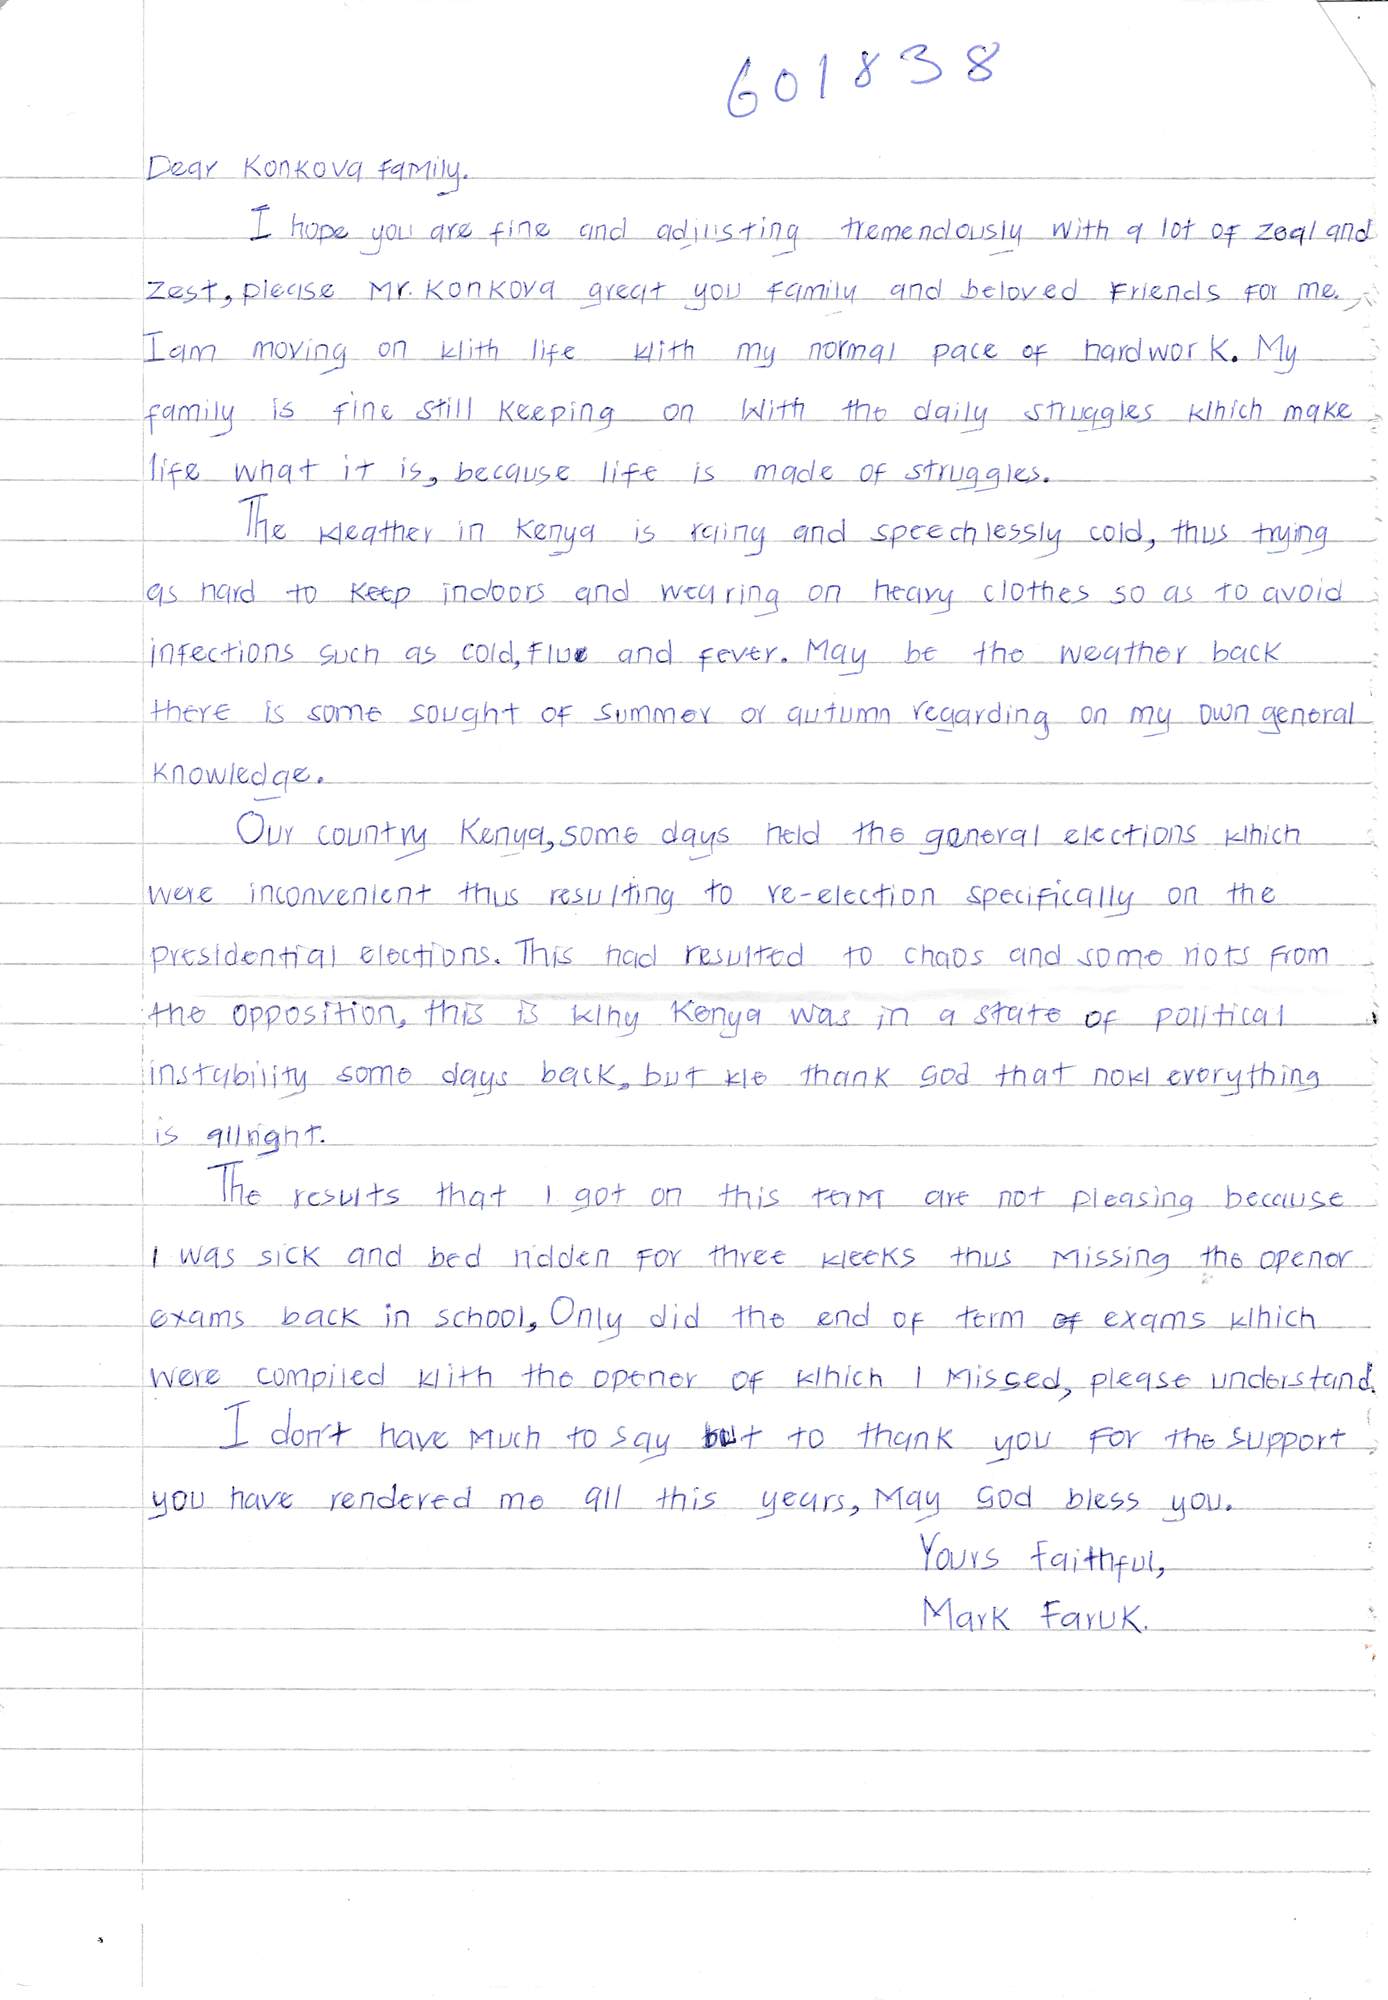 601838
Dear Konkova family.
I hope you are fine and adjusting tremendously with a lot of zeal and
zest, please Mr. Konkova great you family and beloved friends for me.
I am moving on with life with my normal pace of hardwork. My
family is fine still keeping on with the daily struggles which make
life what it is, because life is made of struggles.
The weather in Kenya is rainy and speechlessly cold, thus trying
as hard to keep indoors and wearing on heavy clothes so as to avoid
infections such as cold, flue and fever. May be the weather back
there is some sought of summer or autumn regarding on my own general
knowledge.
Our country Kenya, some days held the general elections which
were inconvenient thus resulting to re-election specifically on the
presidential elections. This had resulted to chaos and some riots from
the opposition, this is why Kenya was in a state of political
instability some days back, but we thank God that now everything
is allright.
The results that I got on this term are not pleasing because
I was sick and bed ridden for three weeks thus missing the opener
exams back in school, Only did the end of term of exams which
were compiled with the opener of which I missed, please understand.
I don't have much to say but to thank you for the support
you have rendered me all this years, May God bless you.
Yours faithful,
Mark Faruk.